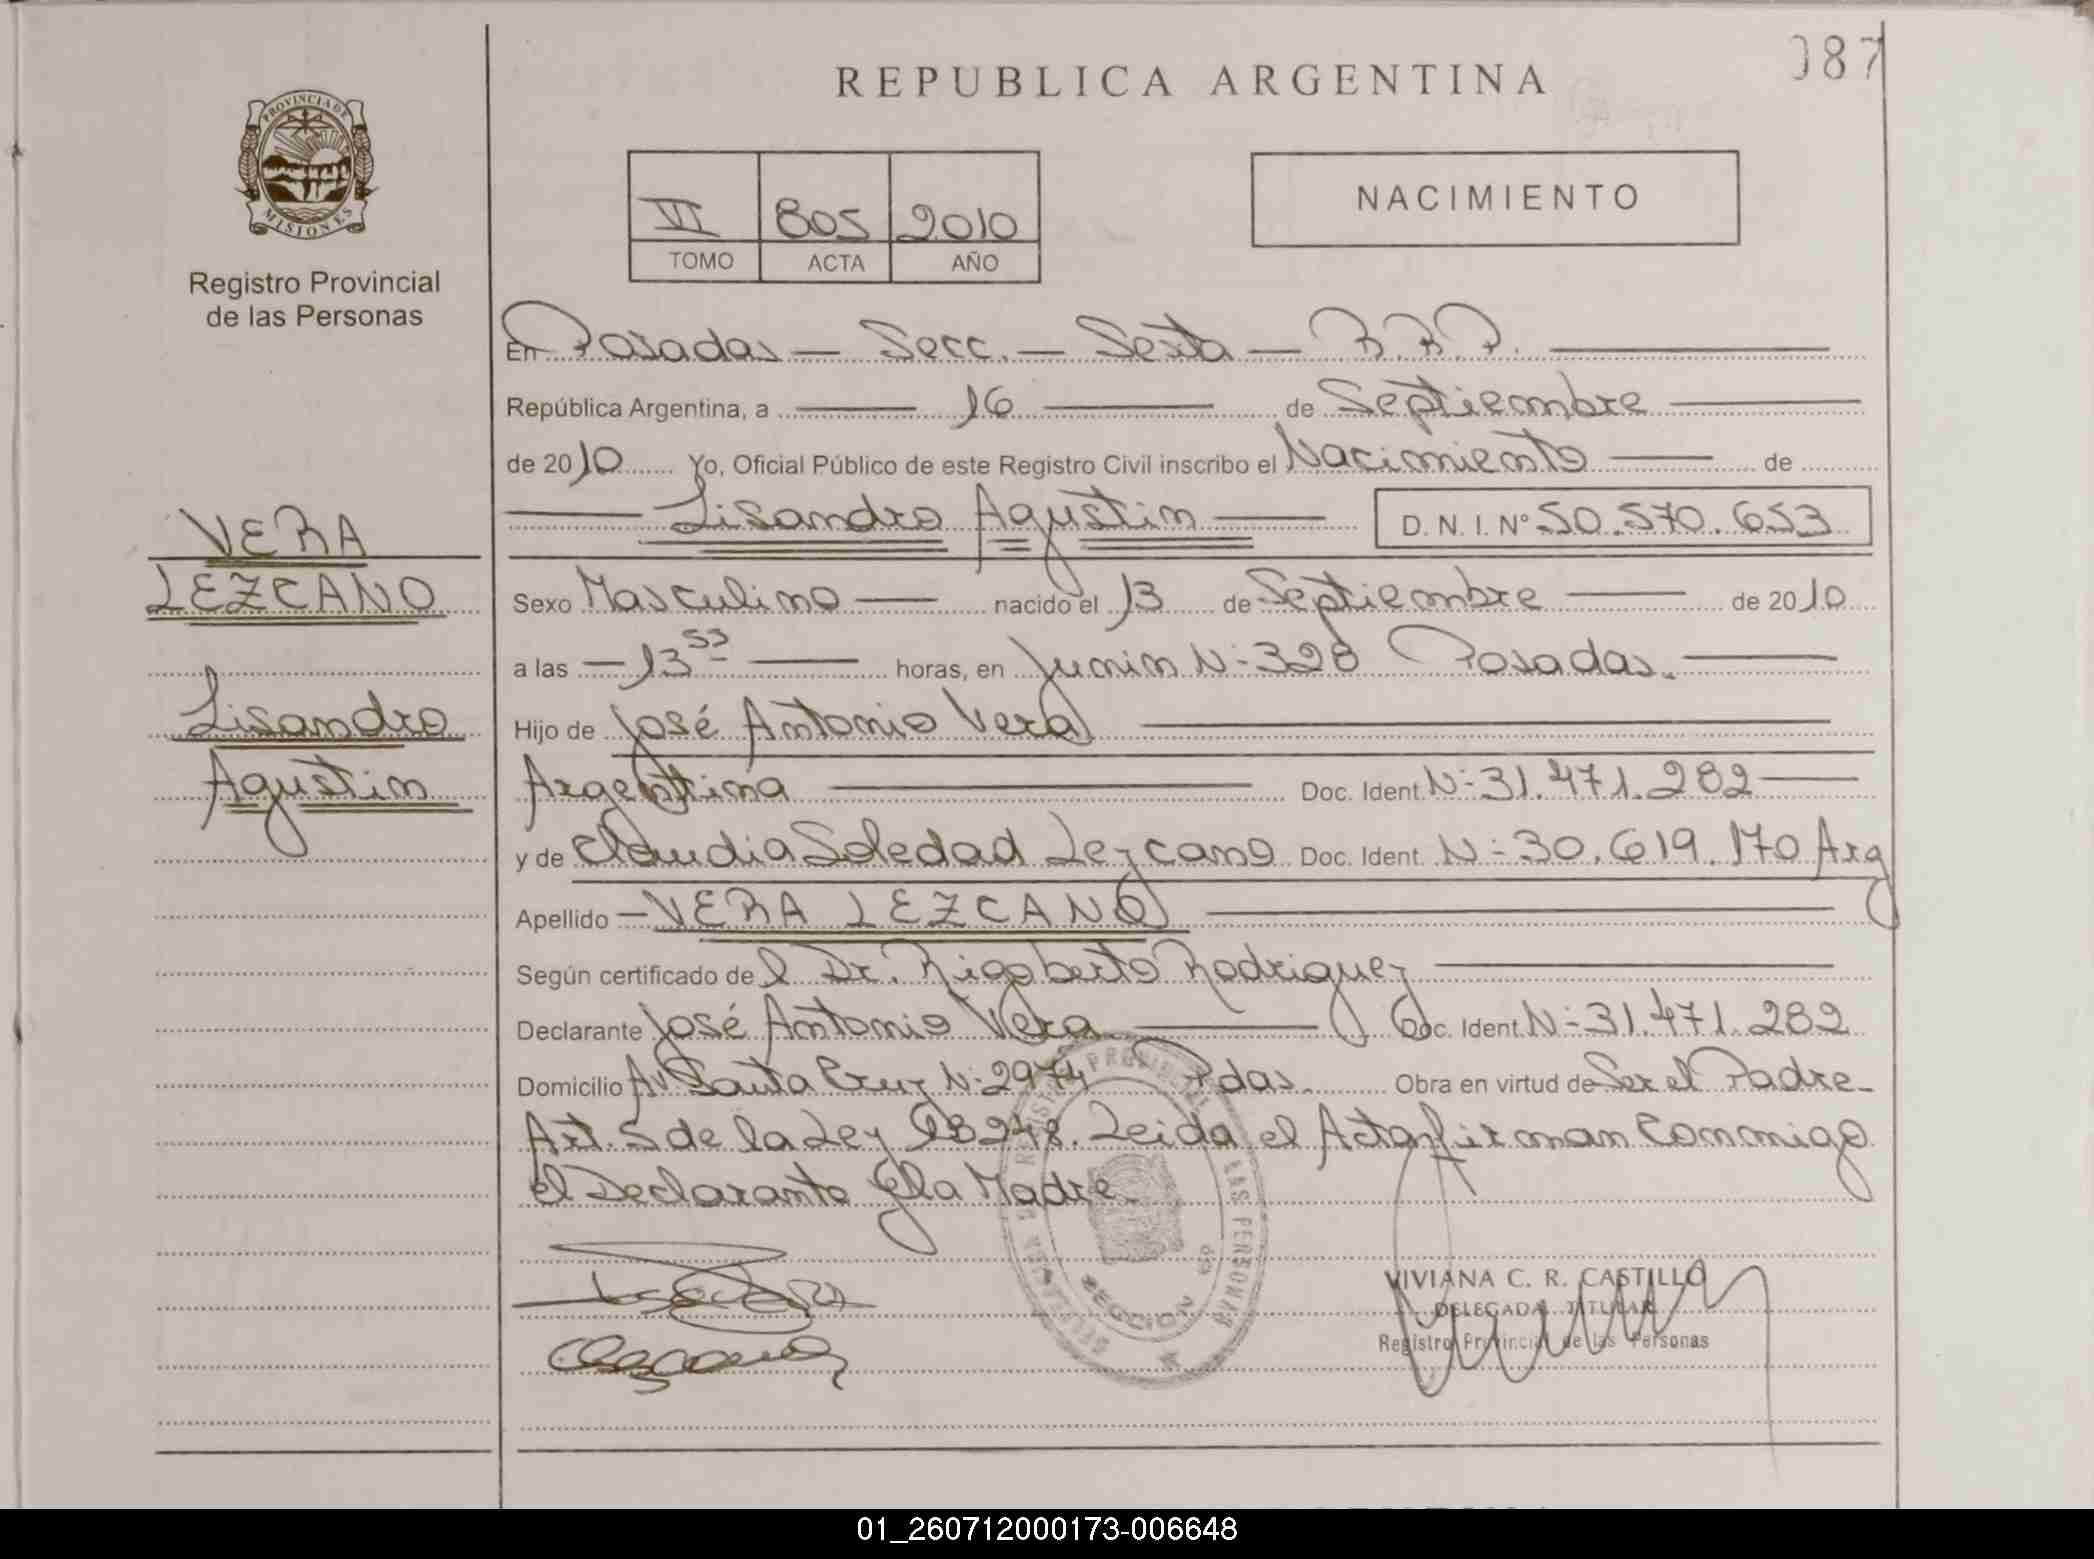 087
REPUBLICA ARGENTINA
PROVINCIA DE
MISIONES
Registro Provincial
de las Personas
VI 805 2010
TOMO ACTA AÑO
NACIMIENTO
En Posadas — Secc. — Sexta — R.R.P.
República Argentina, a — 16 — de Septiembre
de 2010 Yo, Oficial Público de este Registro Civil inscribo el Nacimiento — de
— Lisandro Agustin — D. N. I. Nº 50.570.653
VERA
LEZCANO
Lisandro
Agustin
Sexo Masculino — nacido el 13 de Septiembre — de 2010
a las — 13 53 — horas, en Junin Nº 328 Posadas.
Hijo de José Antonio Vera
Argentina — Doc. Ident. Nº 31.471.282
y de Claudia Soledad Lezcano Doc. Ident. Nº 30.619.170 Arg
Apellido — VERA LEZCANO
Según certificado del Dr. Rigoberto Rodriguez
Declarante José Antonio Vera — Doc. Ident. Nº 31.471.282
Domicilio Av. Santa Cruz Nº 2974 Pdas. Obra en virtud de Ser el Padre
Art. 5 de la Ley 18248. Leida el Acta firman Conmigo
el Declarante y la Madre.
SECCION
VIVIANA C. R. CASTILLO
DELEGADA TITULAR
Registro Provincial de las Personas
01_260712000173-006648